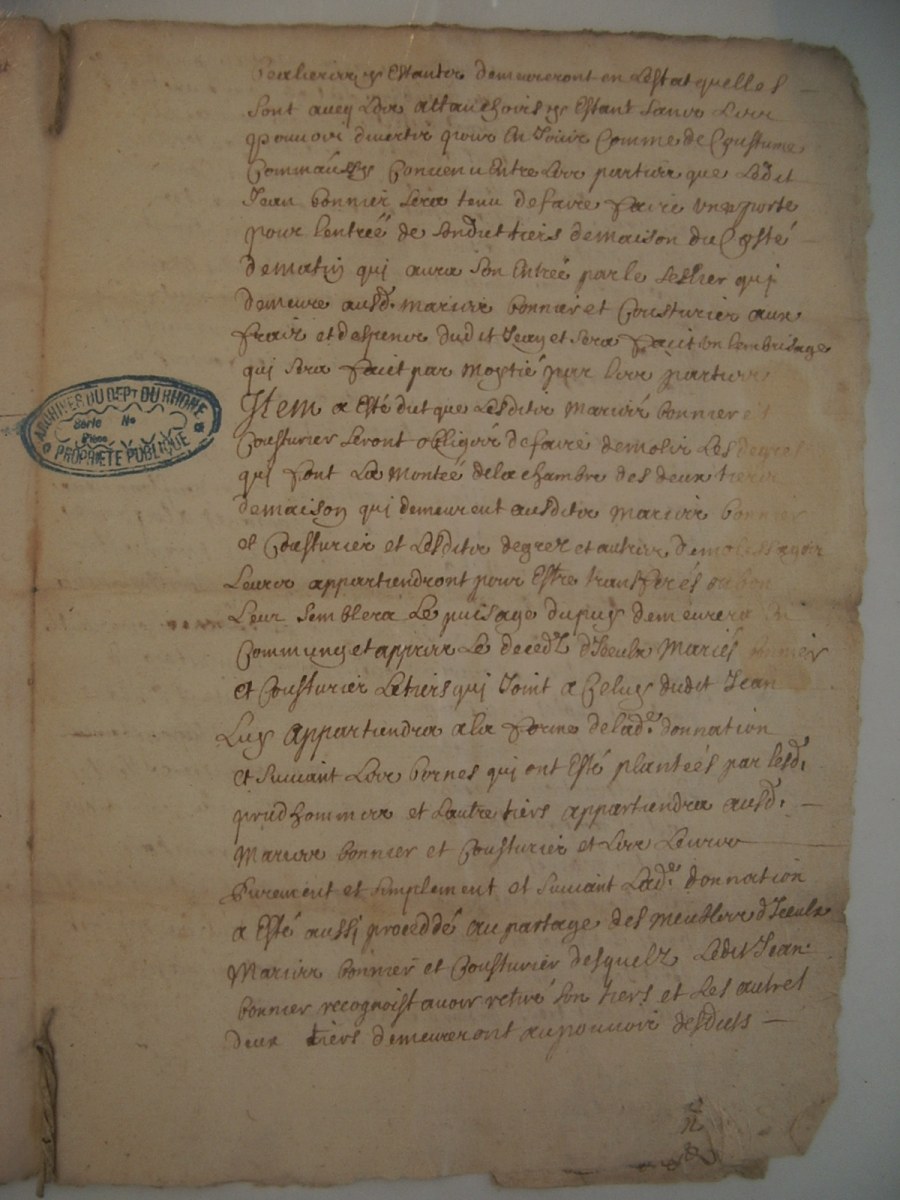 y estantz demeureront en lestat quelles
sont aveq y estant sans
pouvoir divertir pour en Jouir Comme de Coustume
Convenu Entre les parties que Ledit
Jean bonnier sera tenu de faire faire une porte
pour lentreé de sondict tiers de maison du Costé
de matin qui aura son Entreé par le sellier qui
demeure ausd. mariez bonnier et Cousturier aux
fraiz et despence dudit Jean et sera faict un
qui sera faict par moytié par les parties
Jtem a Esté dict que Lesditz Mariez bonnier et
Cousturier seront obligés de faire demolir Les degrez
qui font La Monteé de la chambre des deux tiers
de maison qui demeurent ausditz Mariez bonnier
et Cousturier et Lesditz degrez et autres
Leurs appartiendront pour Estre transferés ou bon
Leur semblera Le puisage du puy demeurera En
Commung et apprez Le deced d'Iceulx Mariés bonnier
et Cousturier Le tiers qui Joint a Celuy dudit Jean
Luy appartiendra a la forme de lad.e donnation
et suivant Les bornes qui ont Esté planteés par lesd.
prudhommes et Lautre tiers appartiendra ausd.
Mariez bonnier et Cousturier et Les Leurs
Purement et simplement et suivant Lad.e donnation
a Esté aussi proceddé au partage des meubles d'Iceulx
Mariez bonnier et Cousturier desquelz Ledit Jean
bonnier recognoist avoir retiré son tiers et Les autres
deux tiers demeureront au pouvoir desdicts
ARCHIVES DU DEPT DU RHONE
Série No
PROPRIETE PUBLIQUE